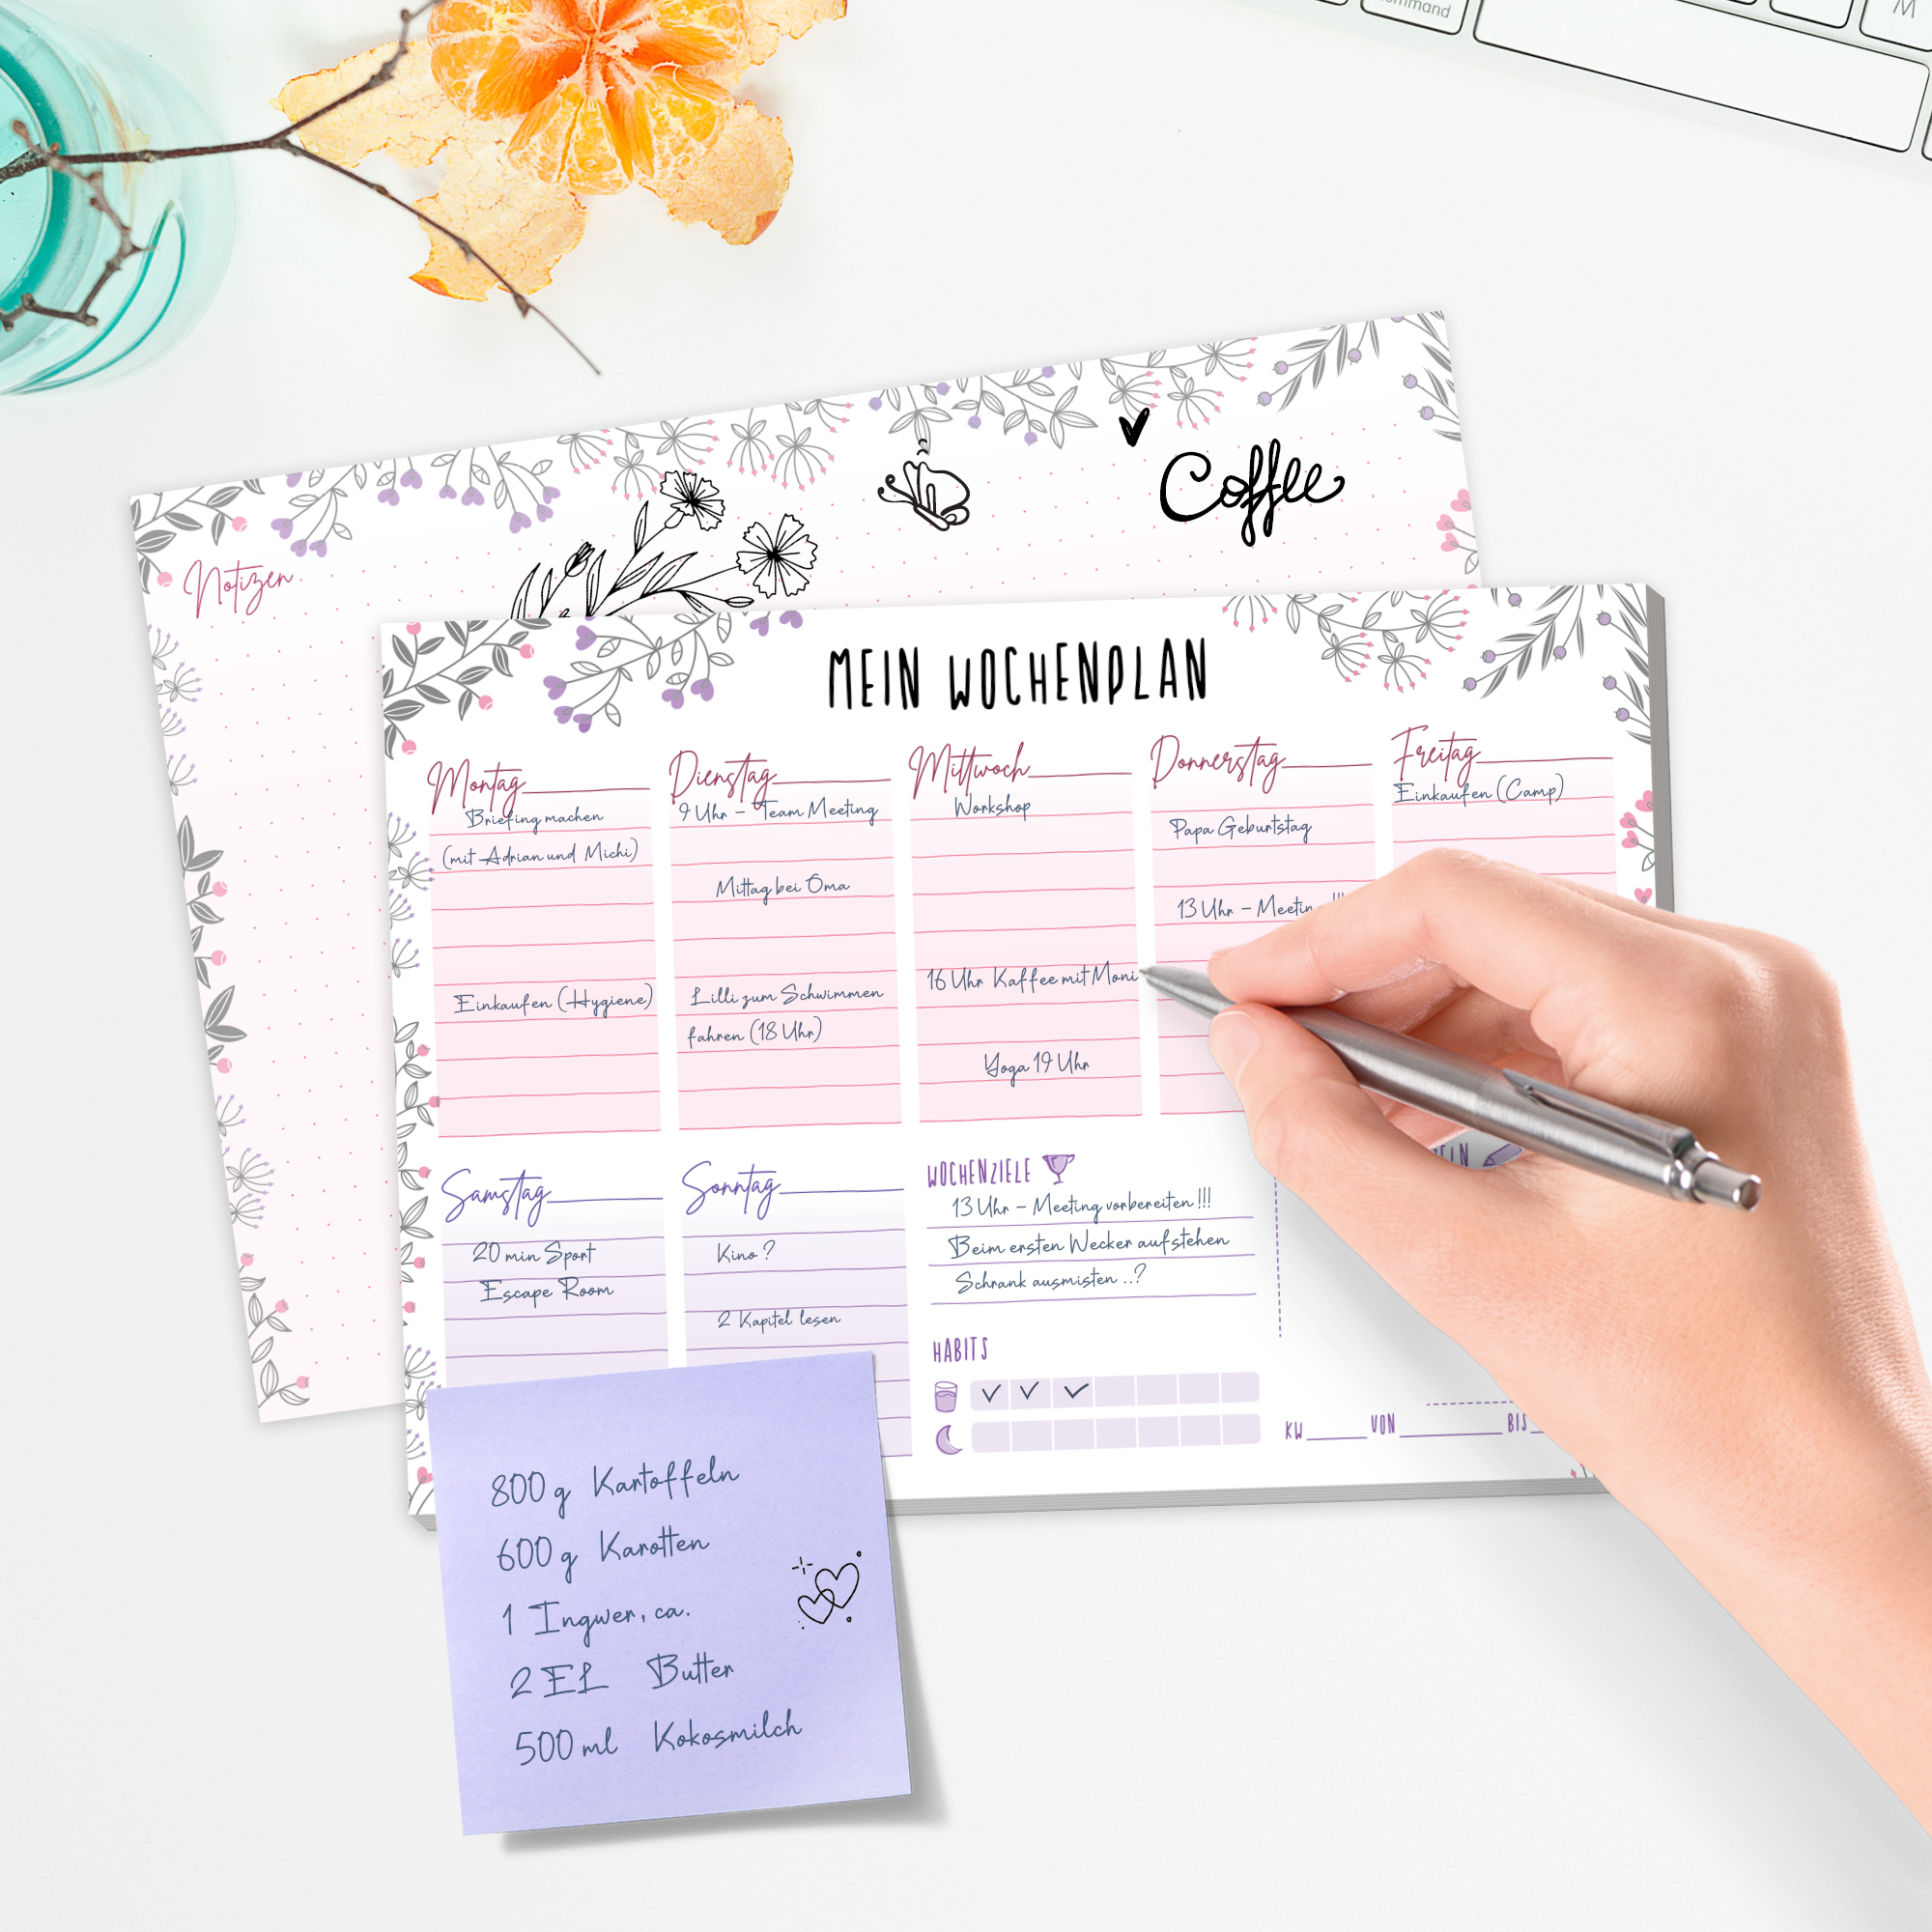 command
M
Coffee
Notizen
MEIN WOCHENPLAN
Montag
Briefing machen
(mit Adrian und Michi)
Einkaufen (Hygiene)
Dienstag
9 Uhr - Team Meeting
Mittag bei Oma
Lilli zum Schwimmen
fahren (18 Uhr)
Mittwoch
Workshop
16 Uhr Kaffee mit Moni
Yoga 19 Uhr
Donnerstag
Papa Geburtstag
13 Uhr - Meetin
Freitag
Einkaufen (Camp)
Samstag
20 min Sport
Escape Room
Sonntag
Kino?
2 Kapitel lesen
WOCHENZIELE
13 Uhr - Meeting vorbereiten !!!
Beim ersten Wecker aufstehen
Schrank ausmisten ..?
HABITS
KW VON BIS
800 g Kartoffeln
600 g Karotten
1 Ingwer, ca.
2 EL Butter
500 ml Kokosmilch